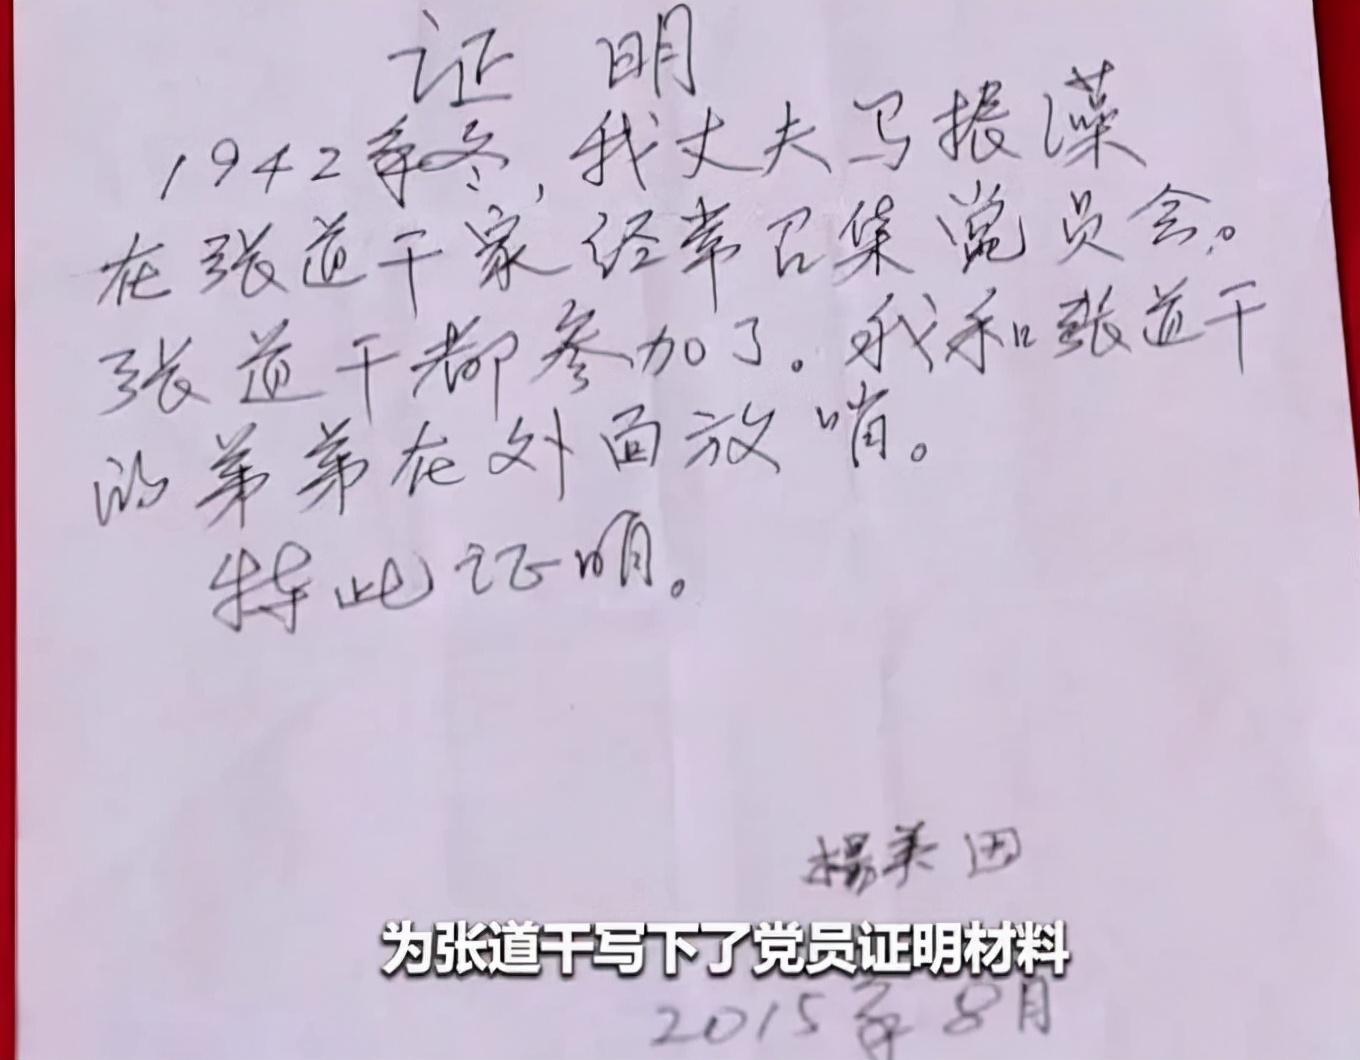 证明
1942年冬,我丈夫马振藻
在张道干家经常召集党员会。
张道干都参加了。我和张道干
的弟弟在外面放哨。
特此证明。
楊美因
为张道干写下了党员证明材料
2015年8月